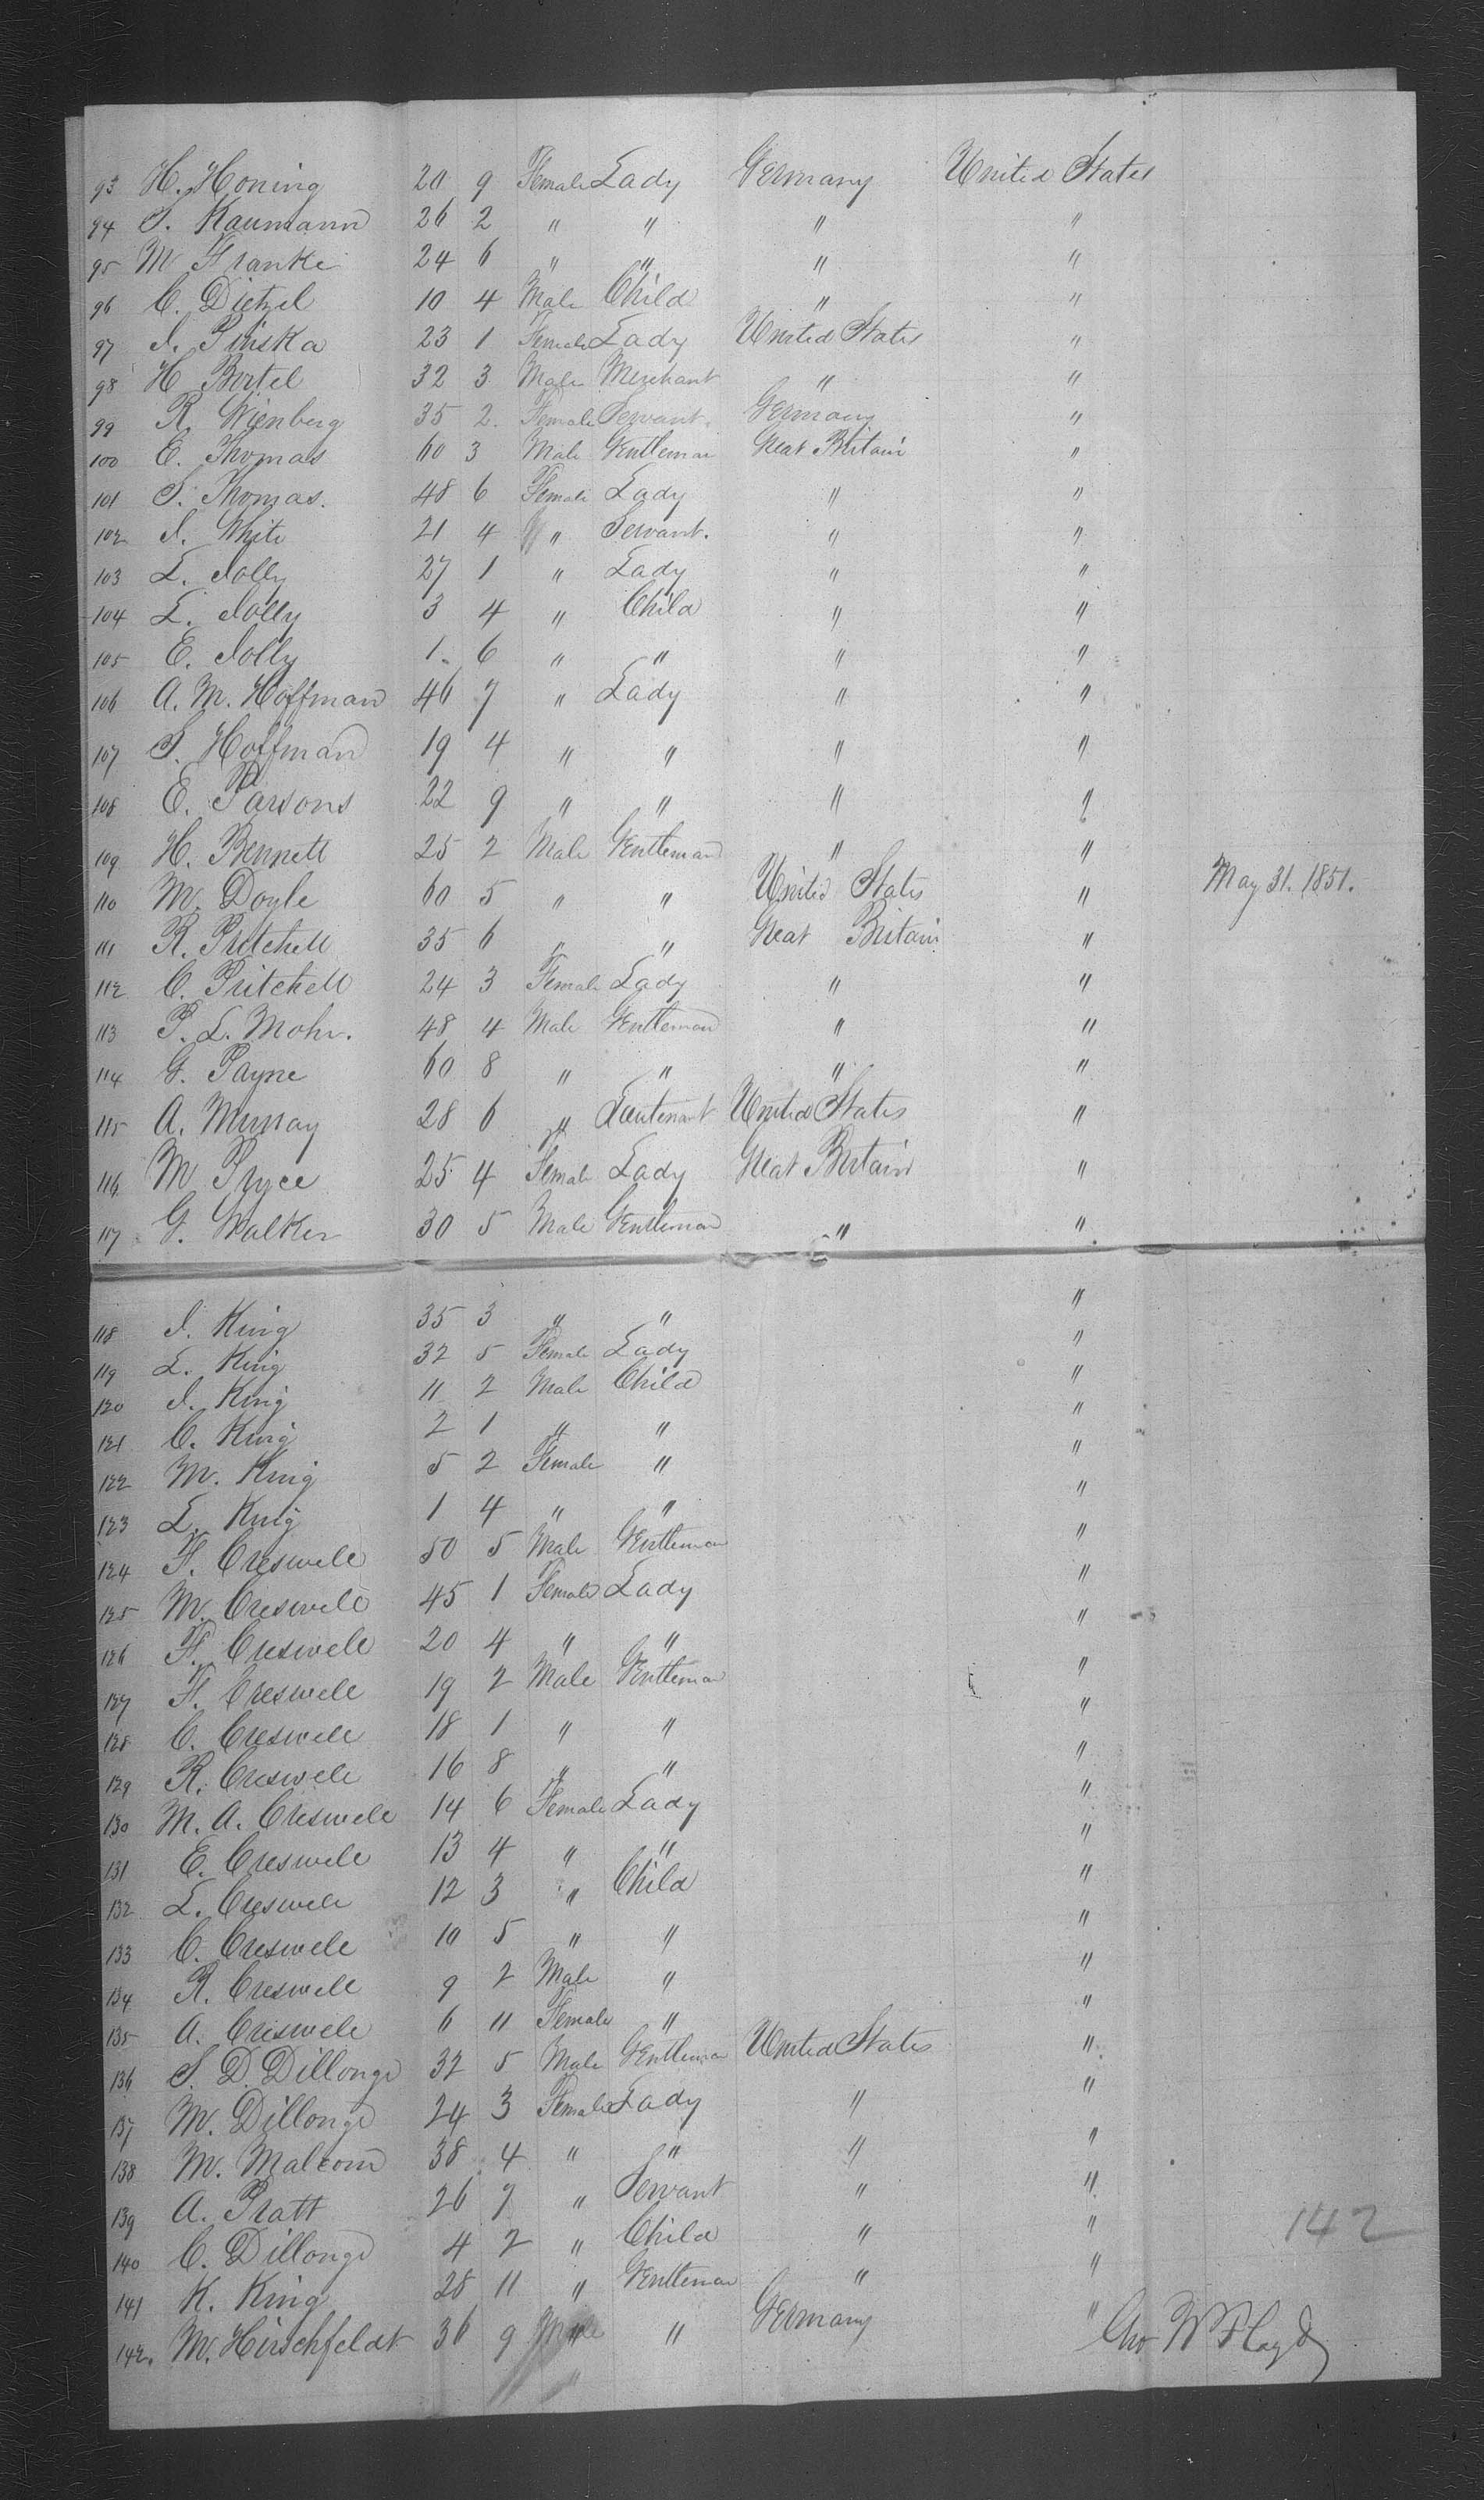 93 H. Honing 20 9 Female Lady Germany United States
94 S. Kaumann 26 2 " " " "
95 M Franke 24 6 " " " "
96 C. Dietzel 10 4 Male Child " "
97 J. Pinska 23 1 Female Lady United States "
98 H Bertel 32 3 Male Merchant " "
99 R. Wienberg 35 2. Female Servant. Germany "
100 E. Thomas 60 3 Male Gentleman Great Britain "
101 S. Thomas. 48 6 Female Lady " "
102 J. White 21 4 " Servant. " "
103 L. Jolly 27 1 " Lady " "
104 L. Jolly 3 4 " Child " "
105 E. Jolly 1. 6 " " " "
106 A. M. Hoffman 46 7 " Lady " "
107 S. Hoffman 19 4 " " " "
108 E. Parsons 22 9 " " " "
109 H. Bennett 25 2 Male Gentleman " "
110 M. Doyle 60 5 " " United States " May 31. 1851.
111 R. Pritchell 35 6 " " Great Britain "
112 C. Pritchell 24 3 Female Lady " "
113 P. L. Mohr. 48 4 Male Gentleman " "
114 G. Payne 60 8 " " " "
115 A. Murray 28 6 " Lieutenant United States "
116 M Pryce 25 4 Female Lady Great Britain "
117 G. Walker 30 5 Male Gentleman " "
118 J. King 35 3 " " "
119 L. King 32 5 Female Lady "
120 J. King 11 2 Male Child "
121 C. King 2 1 " " "
122 M. King 5 2 Female " "
123 L. King 1 4 " " "
124 F. Creswele 50 5 Male Gentleman "
125 M. Creswele 45 1 Female Lady "
126 F. Creswele 20 4 " " "
127 F. Creswele 19 2 Male Gentleman "
128 C. Creswele 18 1 " " "
129 R. Creswele 16 8 " " "
130 M. A. Creswele 14 6 Female Lady "
131 E. Creswele 13 4 " " "
132 L. Creswele 12 3 " Child "
133 C. Creswele 10 5 " " "
134 R. Creswele 9 2 Male " "
135 A. Creswele 6 11 Female " "
136 S. D. Dillonge 32 5 Male Gentleman United States "
137 M. Dillonge 24 3 Female Lady " "
138 M. Malcom 38 4 " " " "
139 A. Pratt 26 7 " Servant " "
140 C. Dillonge 4 2 " Child " " 142
141 K. King 28 11 " Gentleman " "
142. M. Hirschfeldt 36 9 " " Germany "
Geo W Floyd